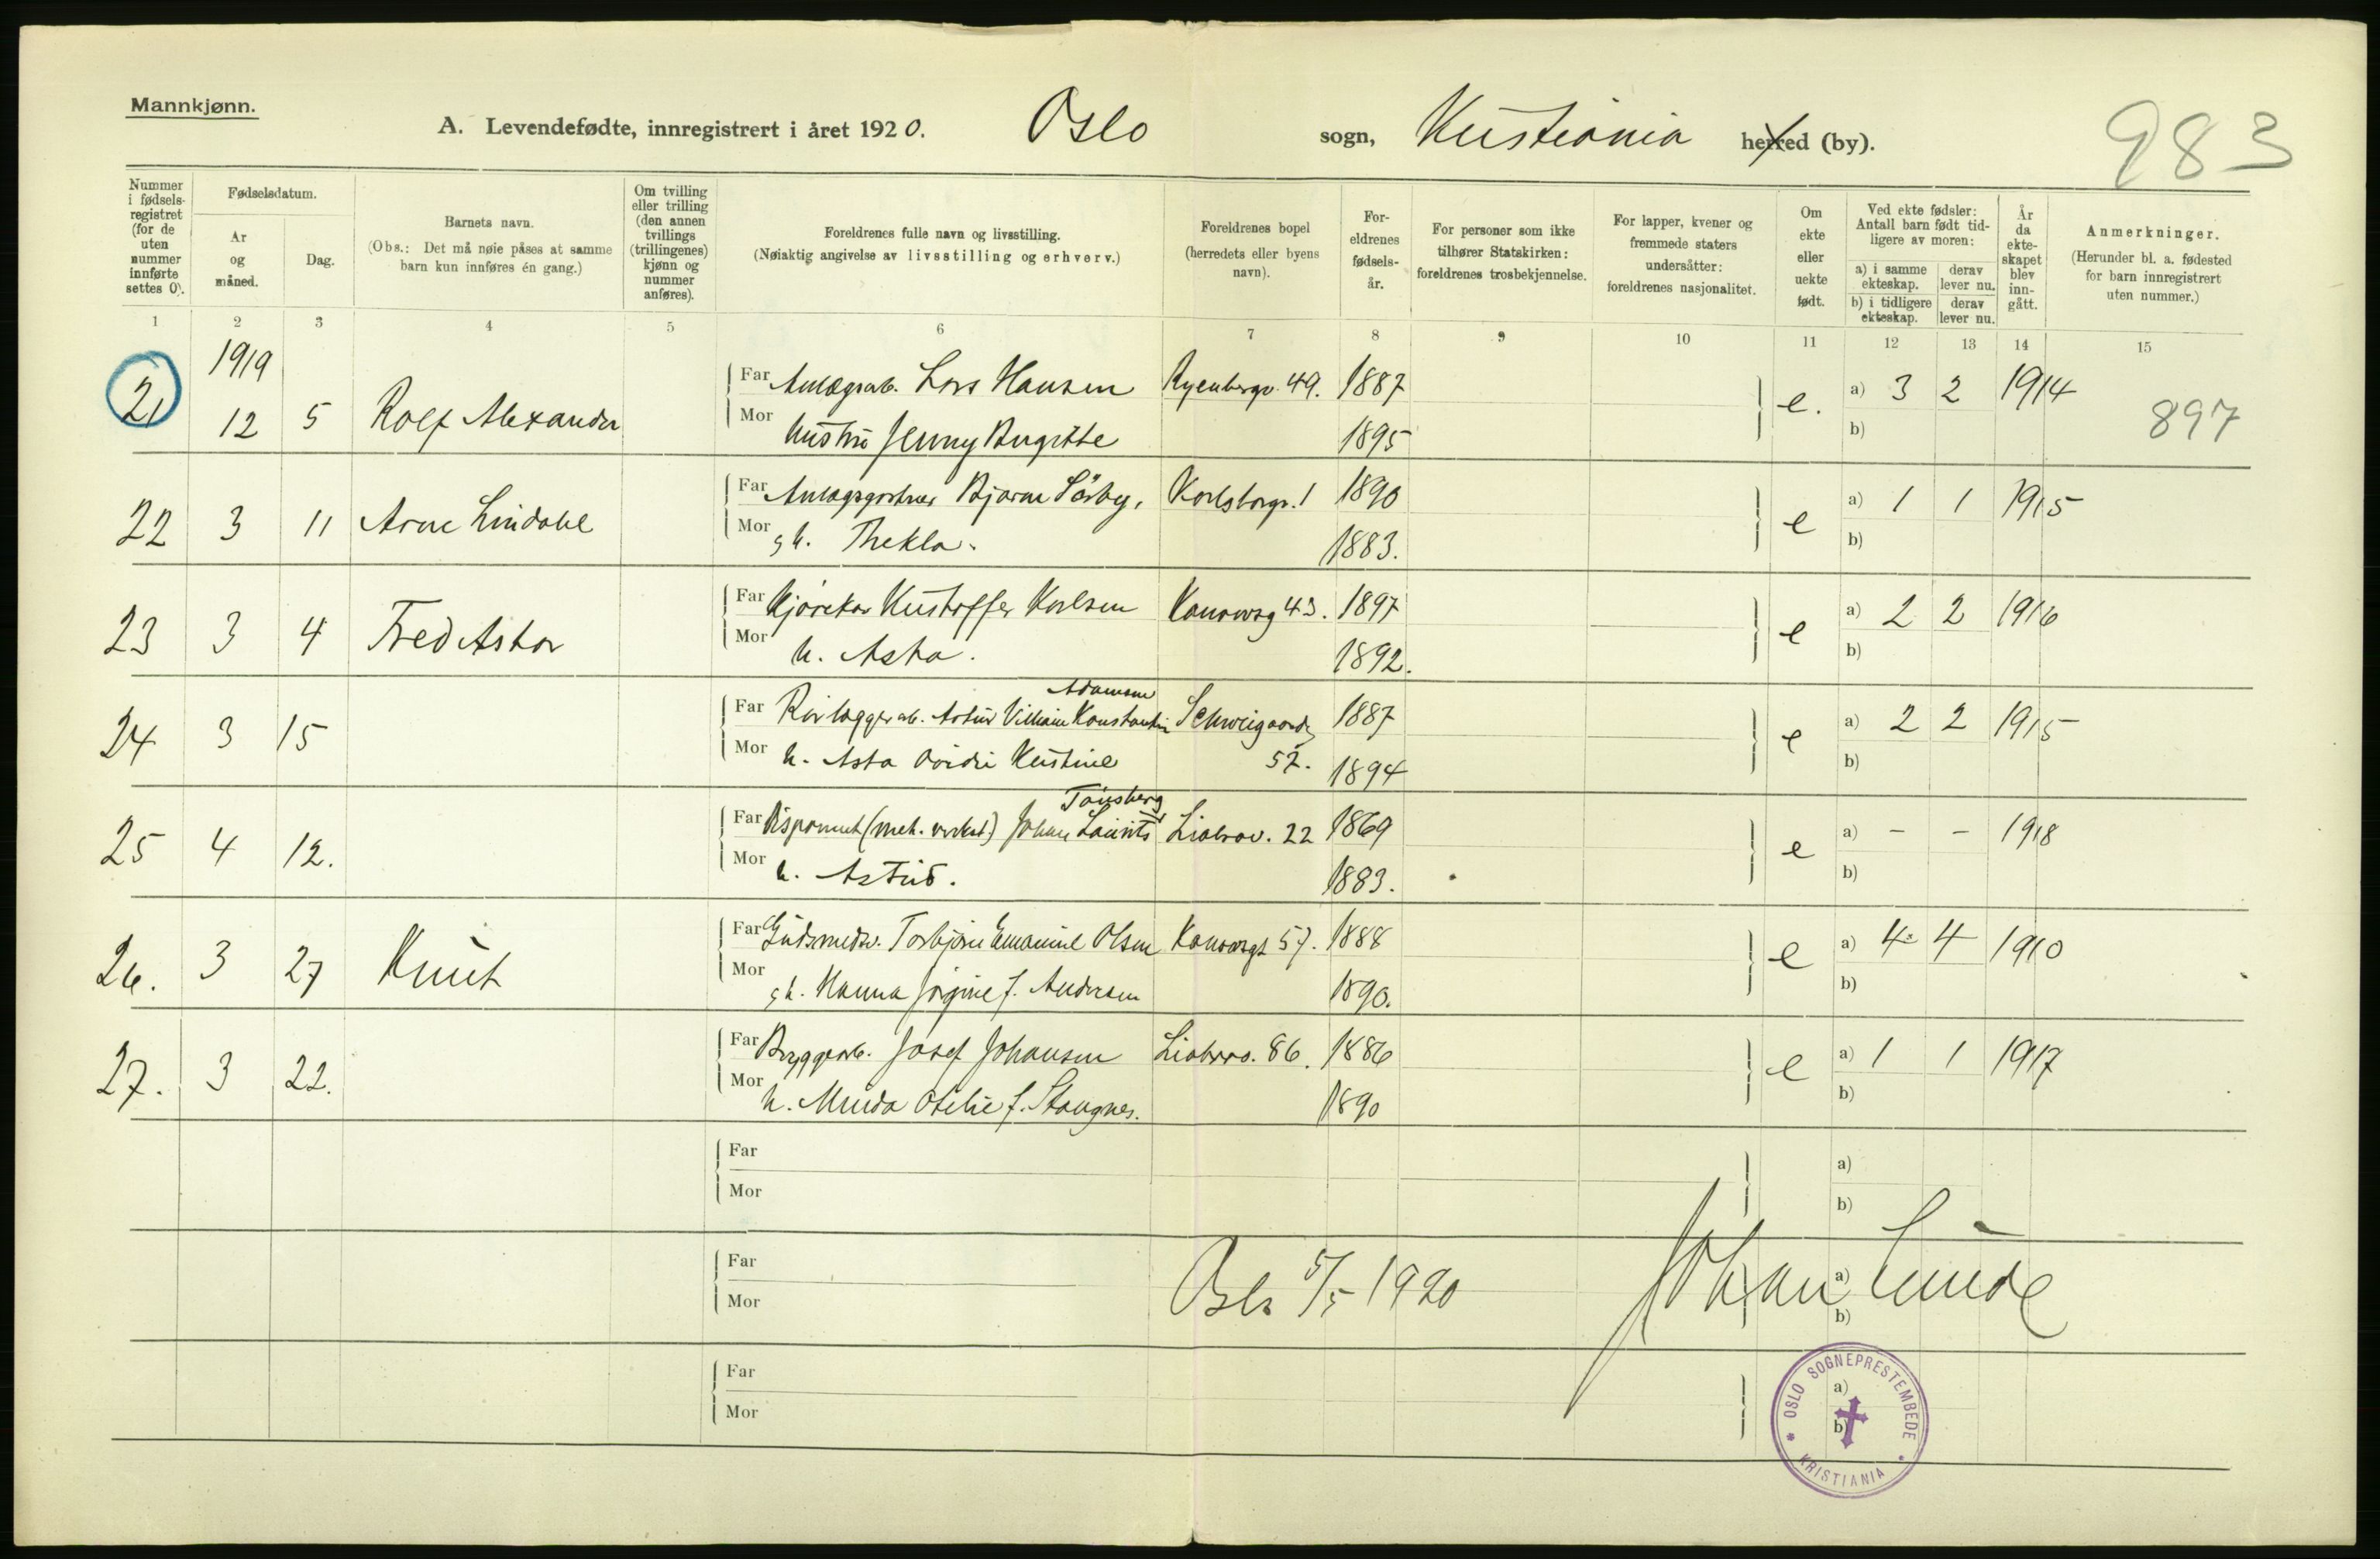 Mannkjønn.
A. Levendefødte, innregistrert i året 1920. Oslo sogn, Kristiania herred (by).
983
Nummer i fødsels-registret (for de uten nummer innførte settes 0).
Fødselsdatum.
År og måned.
Dag.
Barnets navn.
(Obs.: Det må nøie påses at samme barn kun innføres én gang.)
Om tvilling eller trilling (den annen tvillings (trillingenes) kjønn og nummer anføres).
Foreldrenes fulle navn og livsstilling.
(Nøiaktig angivelse av livsstilling og erhverv.)
Foreldrenes bopel (herredets eller byens navn).
For-eldrenes fødsels-år.
For personer som ikke tilhører Statskirken: foreldrenes trosbekjennelse.
For lapper, kvener og fremmede staters undersåtter: foreldrenes nasjonalitet.
Om ekte eller uekte født.
Ved ekte fødsler: Antall barn født tid-ligere av moren:
a) i samme ekteskap. derav lever nu.
b) i tidligere ekteskap. derav lever nu.
År da ekte-skapet blev inn-gått.
Anmerkninger.
(Herunder bl. a. fødested for barn innregistrert uten nummer.)
1 2 3 4 5 6 7 8 9 10 11 12 13 14 15
1919
21 12 5 Rolf Alexander Far Anlægsarb. Lars Hansen Ryenbergv. 49. 1887 e. a) 3 2 1914 897
Mor hustru Jenny Birgitte 1895 b)
22 3 11 Arne Lindahl Far Anlægsgartner Bjarne Sörby, Karlsborgv. 1 1890 e a) 1 1 1915
Mor g h. Thekla. 1883. b)
23 3 4 Fred Astor Far Kjörekar Kristoffer Karlsen Kanowsg 43. 1897 e a) 2 2 1916
Mor h. Asta. 1892. b)
Adamsen
24 3 15 Far Rörlæggerarb. Artur Villiam Konstantin Schweigaardsg 1887 e a) 2 2 1915
Mor h. Asta Kristine 57. 1894 b)
Tönsberg
25 4 12. Far Disponent (mek. verkst) Johan Laurits Liabrov. 22 1869 e a) - - 1918
Mor h. Astrid. 1883. b)
26. 3 27 Knut Far Guldsmedsv. Torbjörn Emanuel Olsen Kanowsgt 57. 1888 e a) 4 4 1910
Mor g h. Hanna Jörgine f. Andersen 1890. b)
27. 3 22. Far Bryggerarb. Josef Johansen Liabrov. 86. 1886 e a) 1 1 1917
Mor h. Minda Otelie f. Stangnes. 1890 b)
Far a)
Mor b)
Far a)
Mor b)
Oslo 5/5 1920 Johan Lunde
Far a)
Mor b)
OSLO SOGNEPRESTEMBEDE * KRISTIANIA *